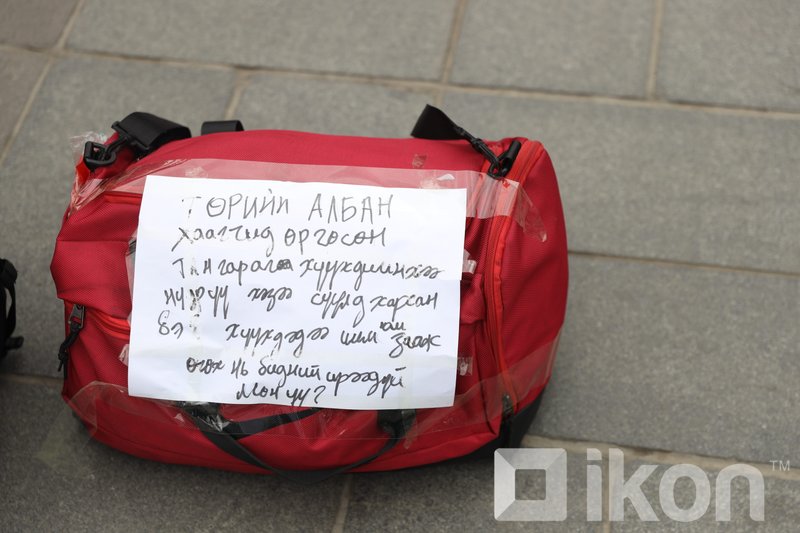 ТӨРИЙН АЛБАН
хаагчид өргөсөн
Тангарагаа хүүхдийнхээ
нүүр үү хэзээ сүүлд харсан
бэ хүүхдэдээ шим юм заах
өгөх нь бидний ирээдүй
мөн үү?
ikon TM